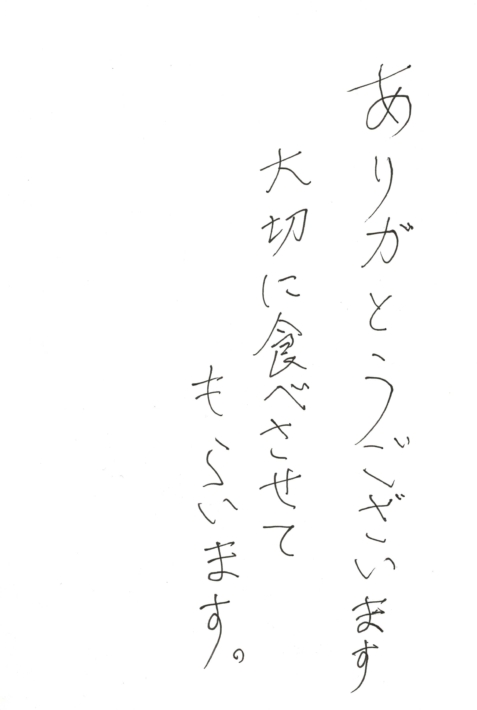 ありがとうございます
大切に食べさせて
もらいます。